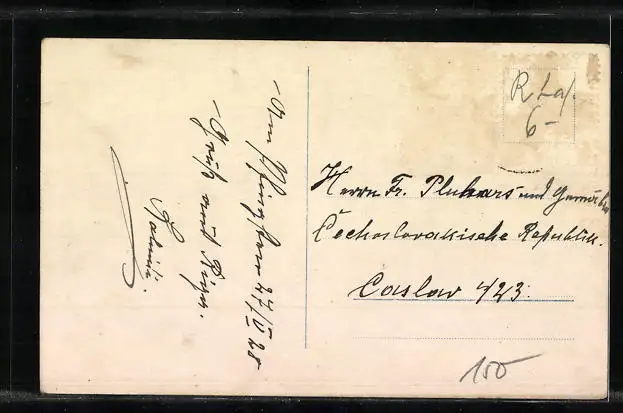 Am Pfingsten 27/V 28
Gruß aus Riga.
R Lat.
6-
Herrn Fr. Pluhars und
Čechoslovakische Republik.
Caslav 423.
150